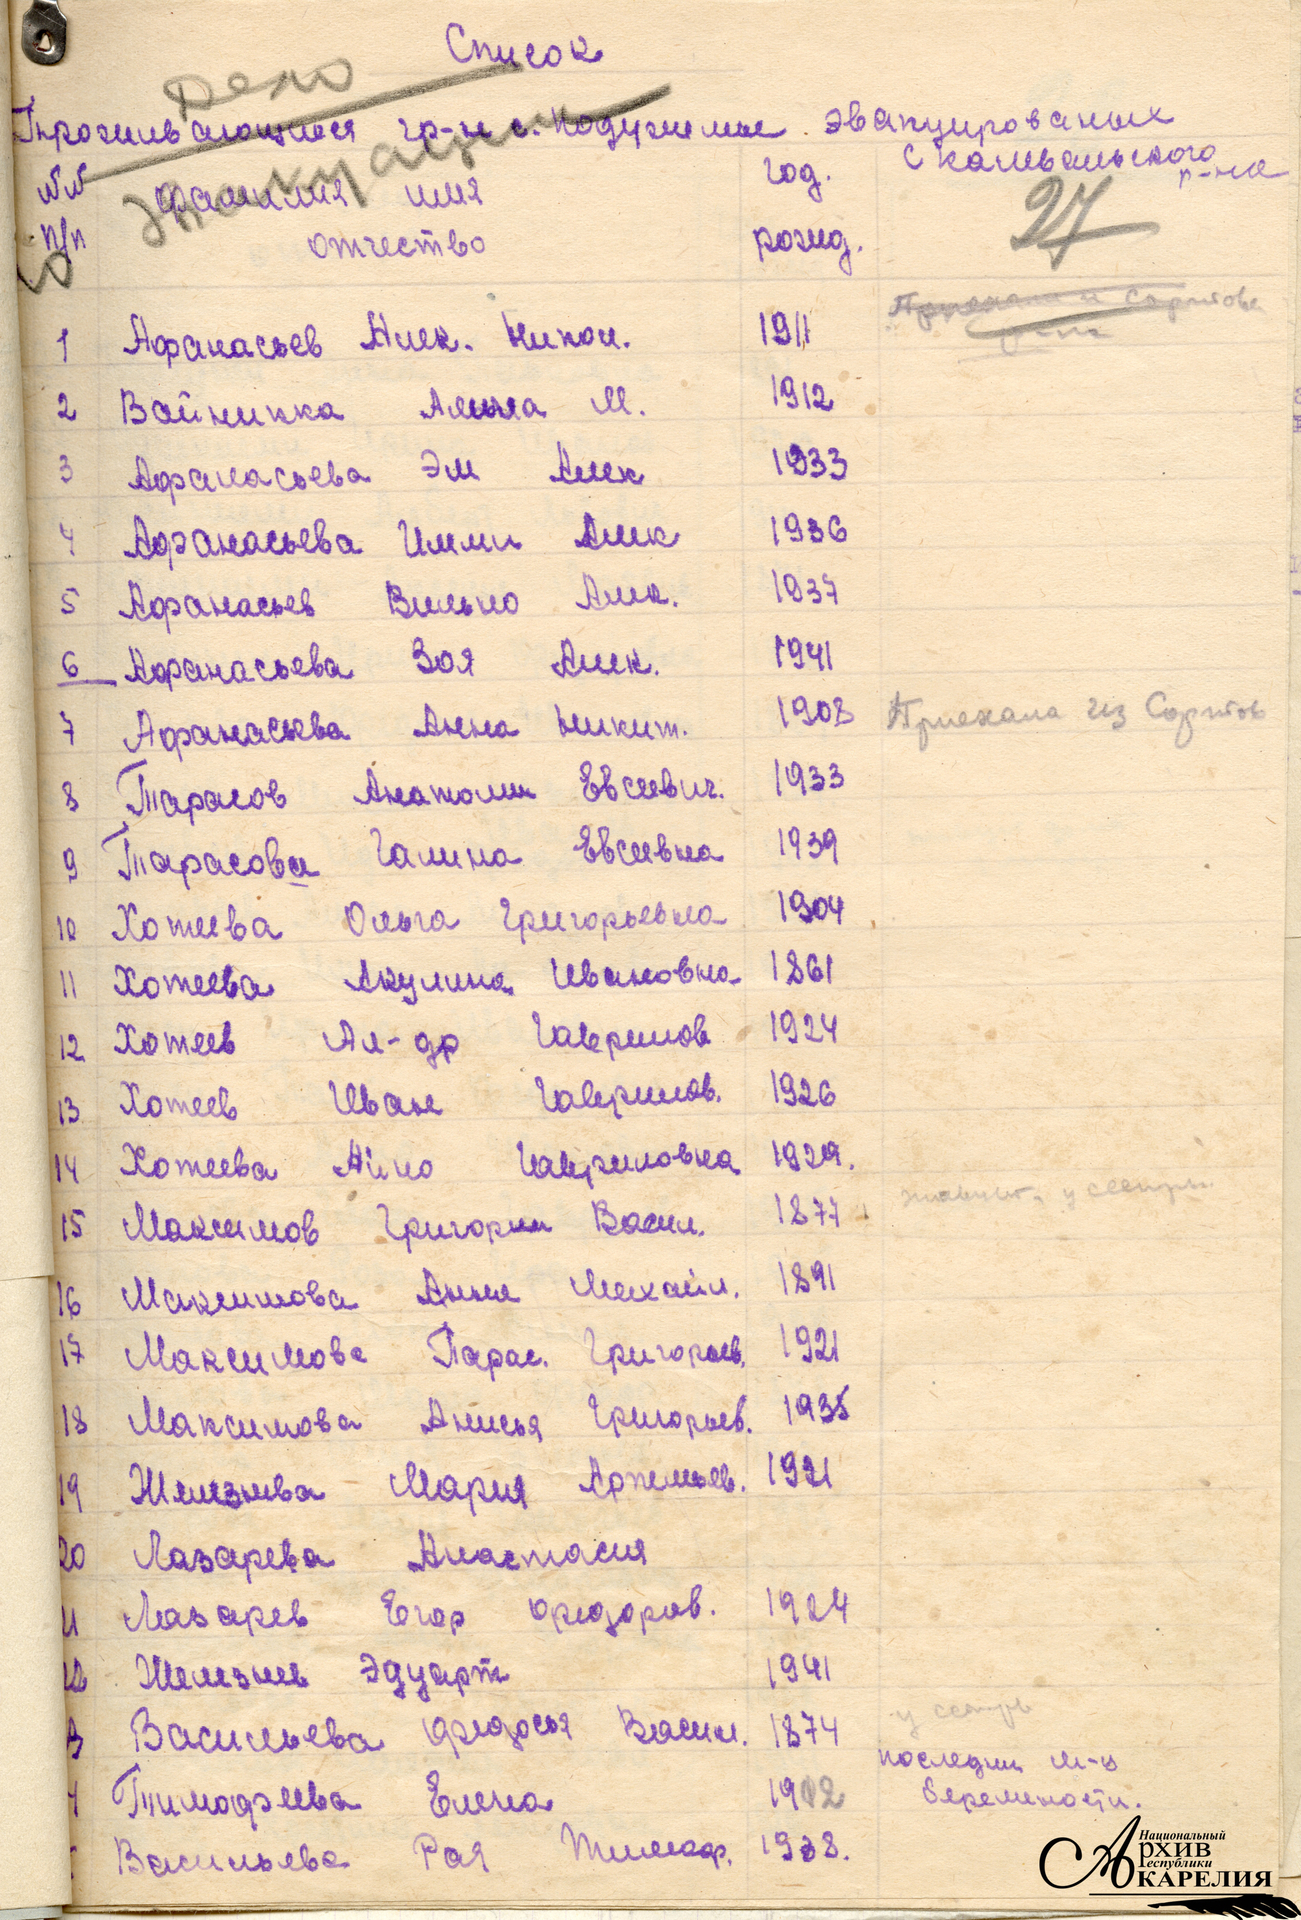 Список
дело
Проживающихся гр-н с. Подужемье. Эвакуированых
с Калевальского
р-на
эвакуация
№№ фамилия имя год.
п/п отчество рожд.
27
Приехали и Сортова
1 Афанасьев Алек. Никол. 1911
2 Войникка Альма М. 1912
3 Афанасьева Эм Алек 1933
4 Афанасьева Импи Алек 1936
5 Афанасьев Вильно Алек. 1937
6 Афанасьева Зоя Алек. 1941
7 Афанасьева Анна Никит. 1908 Приехала из Сортов
8 Тарасов Анатолии Евсеевич. 1933
9 Тарасова Галина Евсеевна 1939
10 Хотеева Ольга Григорьевна 1904
11 Хотеева Акулина Ивановна 1861
12 Хотеев Ал-др Гаврилов 1924
13 Хотеев Иван Гаврилов. 1926
14 Хотеева Айно Гавриловна 1929.
у сестры
15 Максимов Григории Васил. 1877
16 Максимова Анна Михайл. 1891
17 Максимова Парас. Григорьев. 1921
18 Максимова Анисья Григорьев. 1935
19 Железнева Мария Артемьев. 1921
20 Лазарева Анастасия
21 Лазарев Егор Фредоров. 1924
22 Железнев Эдуарт 1941
у сестры
3 Васильева Фредосья Васил. 1874
последни м-ц
4 Тимофеева Елена 1912 беремености.
Васильева Рая Тимоф. 1938.
Национальный
Архив
Республики
Карелия